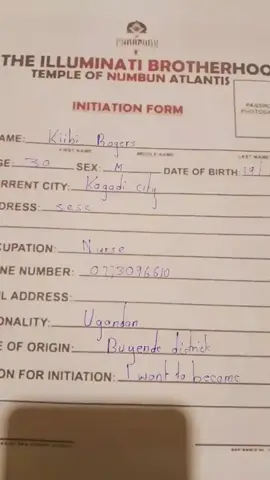 THE ILLUMINATI BROTHERHOO
TEMPLE OF NUMBUN ATLANTIS
INITIATION FORM
PASSPO
PHOTOGRA
AME: Kiibi Rogers
FIRST NAME MIDDLE NAME LAST NAME
GE: 30 SEX: M DATE OF BIRTH: 19/
RRENT CITY: Kagadi city
DRESS: sese
CUPATION: Nurse
NE NUMBER:
IL ADDRESS:
ONALITY: Ugandan
E OF ORIGIN: Buyende
ON FOR INITIATION: I want to become